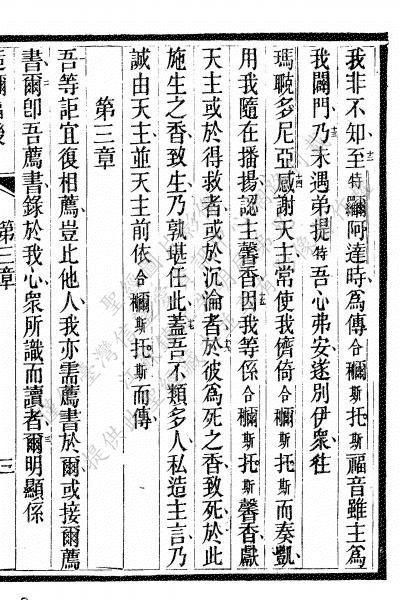 我非不知至特彌阿達時爲傳合彌斯托斯福音雖主爲
我闢門乃未遇弟提特吾心弗安遂別伊衆徃
瑪聭多尼亞感謝天主常使我儕倚合彌斯托斯而奏凱
用我隨在播揚認主馨香因我等係合彌斯托斯馨香獻
天主或於得救者或於沉淪者於彼爲死之香致死於此
施生之香致生乃孰堪任此蓋吾不類多人私造主言乃
誠由天主並天主前依合彌斯托斯而傳
第三章
吾等詎宜復相薦豈比他人我亦需薦書於爾或接爾薦
書爾卽吾薦書錄於我心衆所識而讀者爾明顯係
第三章
三